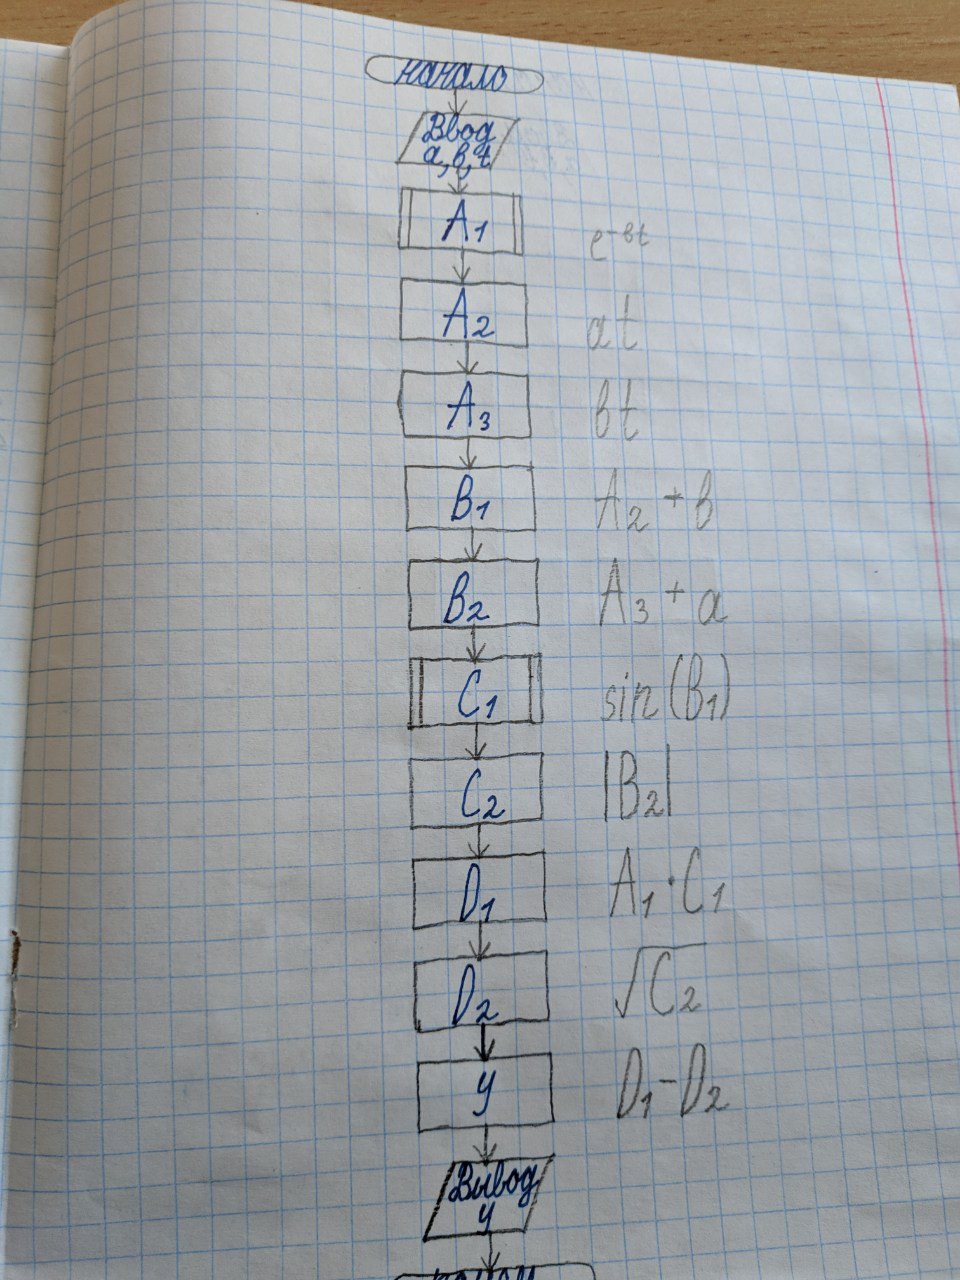 начало
Ввод
a, b, t
A₁ e⁻ᵇᵗ
A₂ at
A₃ bt
B₁ A₂ + b
B₂ A₃ + a
C₁ sin(B₁)
C₂ |B₂|
D₁ A₁ · C₁
D₂ √C₂
y D₁ - D₂
Вывод
y